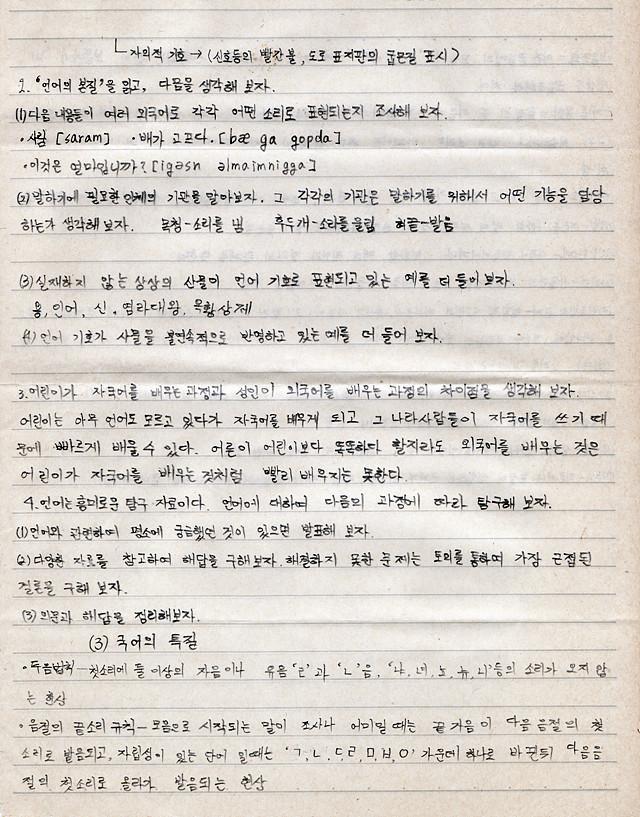 └ 자의적 기호 → (신호등의 빨간불, 도로 표지판의 굽은길 표시)
2. '언어의 본질'을 읽고, 다음을 생각해 보자.
(1) 다음 내용들이 여러 외국어로 각각 어떤 소리로 표현되는지 조사해 보자.
·사람 [saram] ·배가 고프다. [bæ ga gopda]
·이것은 얼마입니까? [igəsn əlmaimnigga]
(2) 말하기에 필요한 인체의 기관을 알아보자. 그 각각의 기관은 말하기를 위해서 어떤 기능을 담당
하는가 생각해 보자. 목청-소리를 냄 후두개-소리를 울림 혀끝-발음
(3) 실재하지 않는 상상의 산물이 언어 기호로 표현되고 있는 예를 더 들어 보자.
용, 인어, 신, 염라대왕, 옥황상제
(4) 언어 기호가 사물을 불연속적으로 반영하고 있는 예를 더 들어 보자.
3. 어린이가 자국어를 배우는 과정과 성인이 외국어를 배우는 과정의 차이점을 생각해 보자.
어린이는 아무 언어도 모르고 있다가 자국어를 배우게 되고 그 나라사람들이 자국어를 쓰기 때
문에 빠르게 배울 수 있다. 어른이 어린이보다 똑똑하다 할지라도 외국어를 배우는 것은
어린이가 자국어를 배우는 것처럼 빨리 배우지는 못한다.
4. 언어는 흥미로운 탐구 자료이다. 언어에 대하여 다음의 과정에 따라 탐구해 보자.
(1) 언어와 관련하여 평소에 궁금했던 것이 있으면 발표해 보자.
(2) 다양한 자료를 참고하여 해답을 구해보자. 해결하지 못한 문제는 토의를 통하여 가장 근접된
결론을 구해 보자.
(3) 의문과 해답을 정리해보자.
(3) 국어의 특질
·두음법칙-첫소리에 둘 이상의 자음이나 유음 'ㄹ'과 'ㄴ'음, '냐, 녀, 뇨, 뉴, 니'등의 소리가 오지 않
는 현상
·음절의 끝소리 규칙-모음으로 시작되는 말이 조사나 어미일 때는 끝 자음이 다음 음절의 첫
소리로 발음되고, 자립성이 있는 단어 일때는 'ㄱ, ㄴ, ㄷ, ㄹ, ㅁ, ㅂ, ㅇ' 가운데 하나로 바뀐뒤 다음음
절의 첫소리로 올라가 발음되는 현상